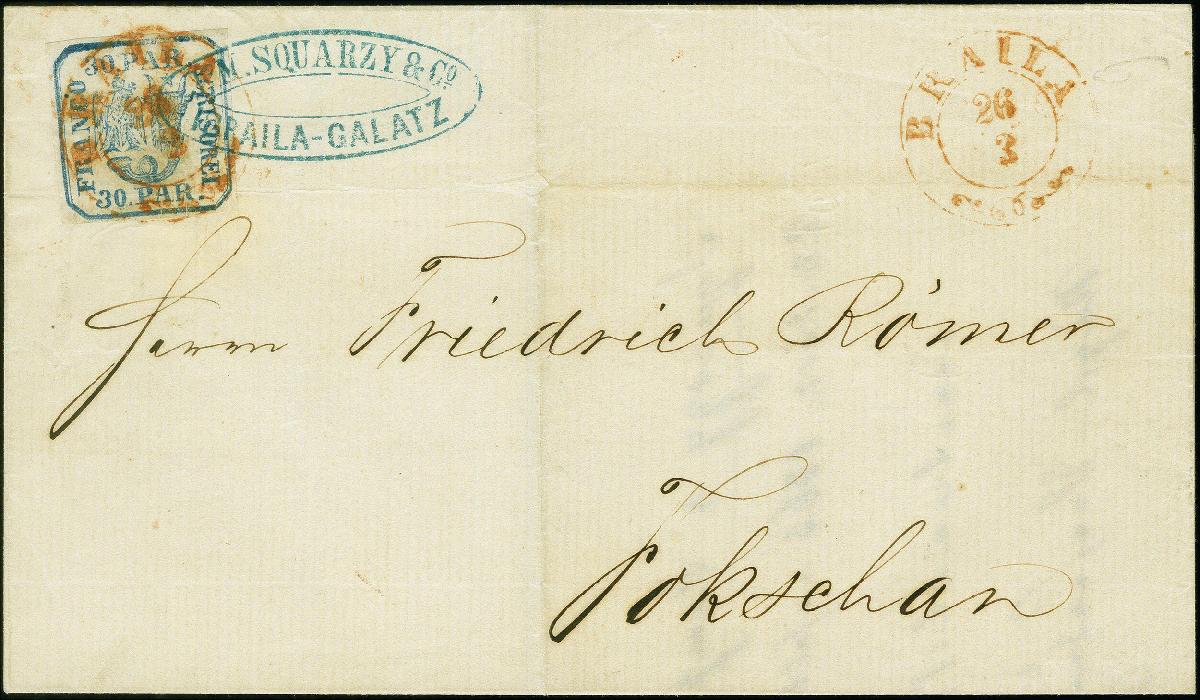 30 PAR
FRANCO
SCRISOREI
30. PAR.
M. SQUARZY & Cº
BRAILA-GALATZ
BRAILA
26
3
Herrn Friedrich Römer
Fokschan